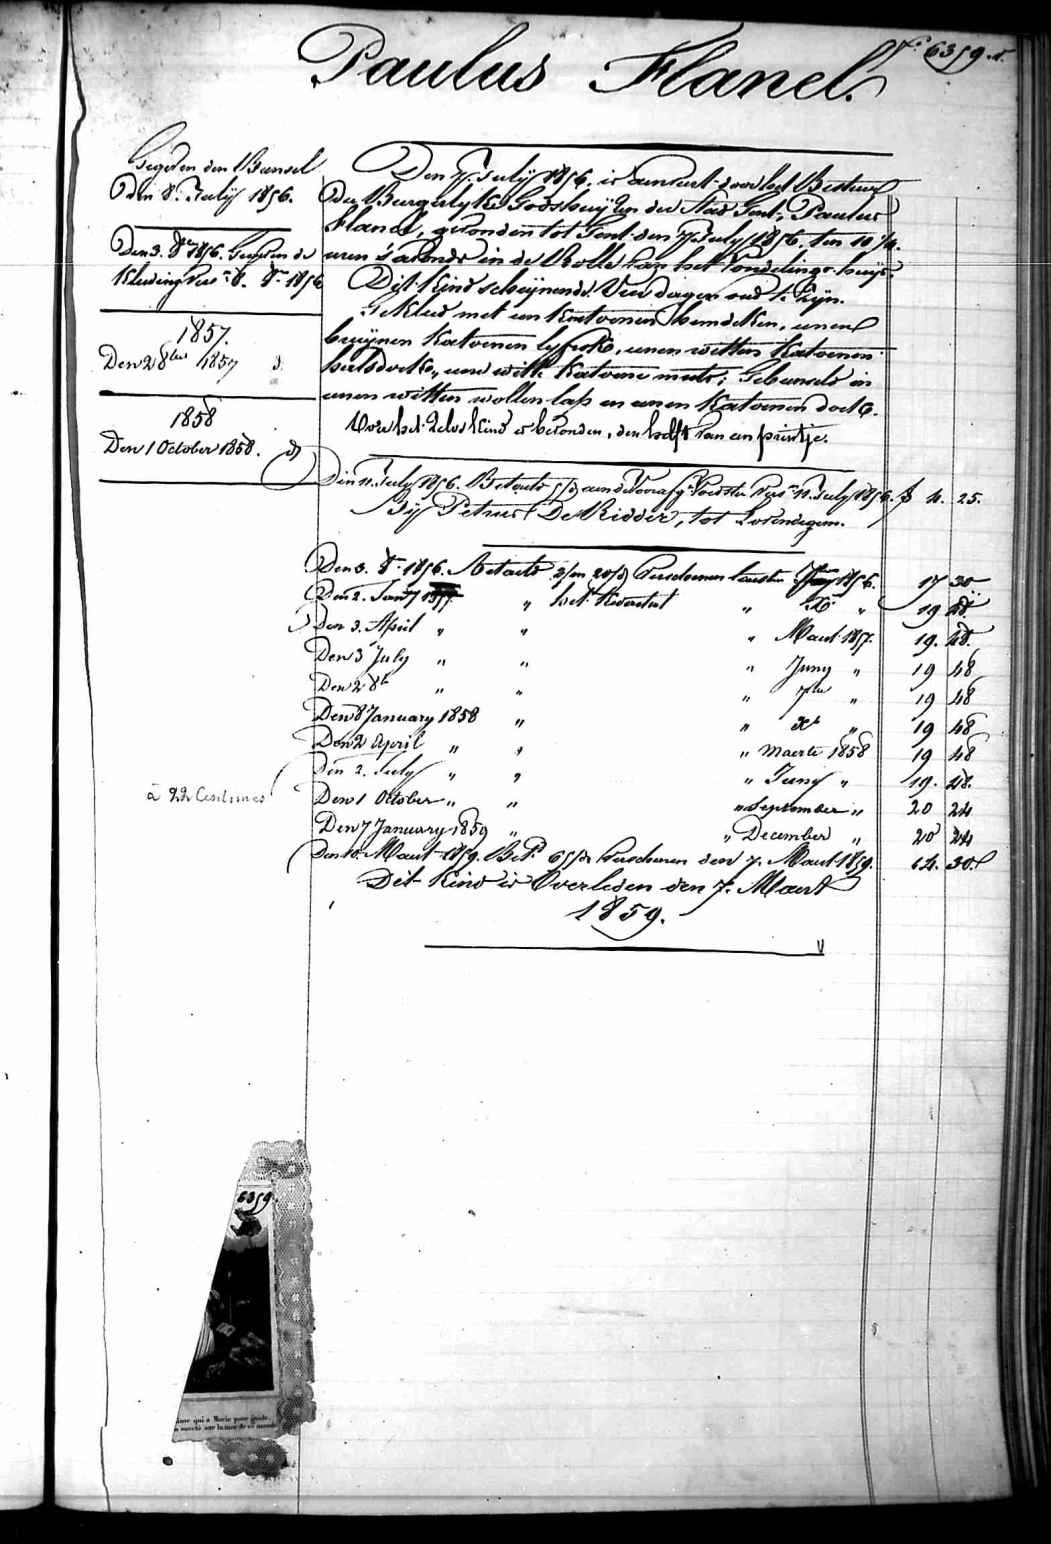 Nº 6359.
Paulus Flanel.
Gegeven den Bunsel
Den 8. July 1856.
Den 3. 8br 1856. Gegeven de
Kleeding 8br 1856
1857.
Den 2 8ber 1857
1858
Den 1 October 1858.
Den 7. July 1856, is aenveert door het Bestuur
Der Burgerlyke Godshuyzen der Stad Gent, Paulus
Flanel, gevonden tot Gent den 7 July 1856, ten 10 1/4
uren s'avonds in de Rolle van het Vondelings-huys.
Dit Kind scheynende Vier dagen oud te Zyn.
Gekleed met een Katoenen hemdeken, eenen
bruynen Katoenen lyfrok, eenen witten Katoenen
halsdoek, eene witte Katoene muts; Gebunseld in
eenen witten wollen lap en eenen Katoenen doek.
Voor het Zelve Kind is bevonden, den helft van een printje.
Den 11. July 1856. Betaeld aen de Voedster 11. July 1856. f 4. 25.
By Petrus De Ridder, tot Lovendegem.
Den 3. 8br 1856. Betaeld Verschenen 1856. 17 30
Den 2. Jany 1857. " het Kwartaal " Xr " 19 48.
Den 3. April " " " Maert 1857. 19. 48.
Den 3 July " " " Juny " 19 48
Den 2 8br " " " 7ber " 19 48
Den 8 January 1858 " " Xr " 19 48
Den 2 April " " " Maerte 1858 19 48
Den 2. July " " " Juny " 19. 48.
à 22 Centimes
Den 1 October " " " September " 20 24
Den 7 January 1859 " " December " 20 24
Den 10. Maert 1859. Bet. Verschenen den 7. Maert 1859. 14. 30.
Dit Kind is Overleden den 7. Maert
1859.
6359.
qui a Marie pour guide,
marche sur la mer de ce monde